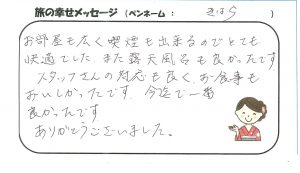 旅の幸せメッセージ (ペンネーム： きはら )
お部屋も広く喫煙も出来るのでとても
快適でした。また露天風呂も良かったです
スタッフさんの対応も良く、お食事も
おいしかったです。今迄で一番
良かったです
ありがとうございました。